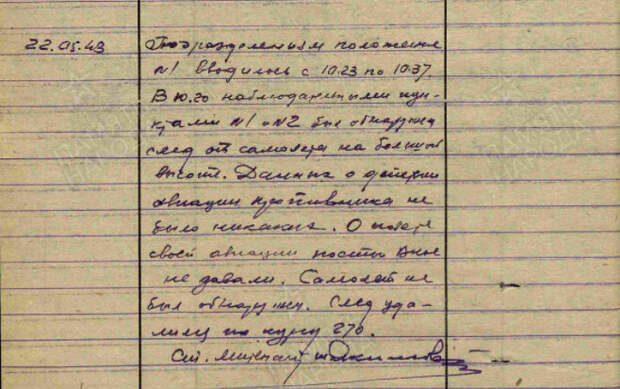 22.05.43 Подразделениям положение
№1 вводилось с 10.23 по 10.37.
В 10.20 наблюдательными пун-
ктами №1 и №2 был обнаружен
след от самолета на большой
высоте. Данных о действии
авиации противника не
было никаких. О полете
своей авиации посты ВНОС
не давали. Самолет не
был обнаружен. След уда-
лился по курсу 270.
Ст. лейтенант